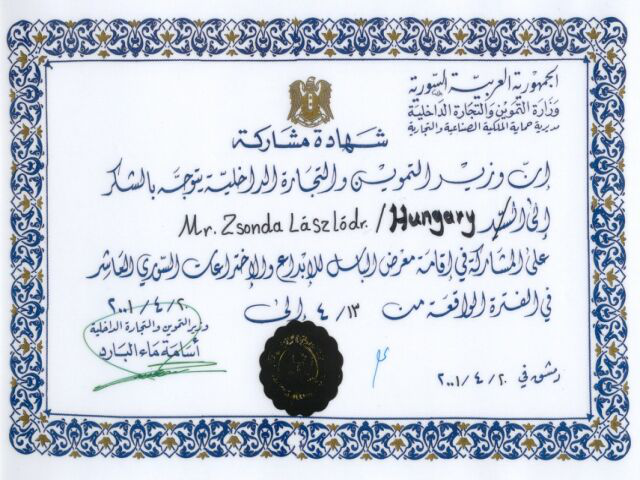 الجمهورية العربية السورية
وزارة التموين والتجارة الداخلية
مديرية حماية الملكية الصناعية والتجارية
شهادة مشاركة
إن وزير التموين والتجارة الداخلية يتوجه بالشكر
إلى السيد Mr. Zsonda Lászlódr. / Hungary
على المشاركة في إقامة معرض الباسل للإبداع والإختراعات السوري العاشر
في الفترة الواقعة من ١٣/ ٤ إلى ٢٠٠١/٤/٢٠
وزير التموين والتجارة الداخلية
أسامة ماء البارد
دمشق في ٢٠٠١/٤/٢٠